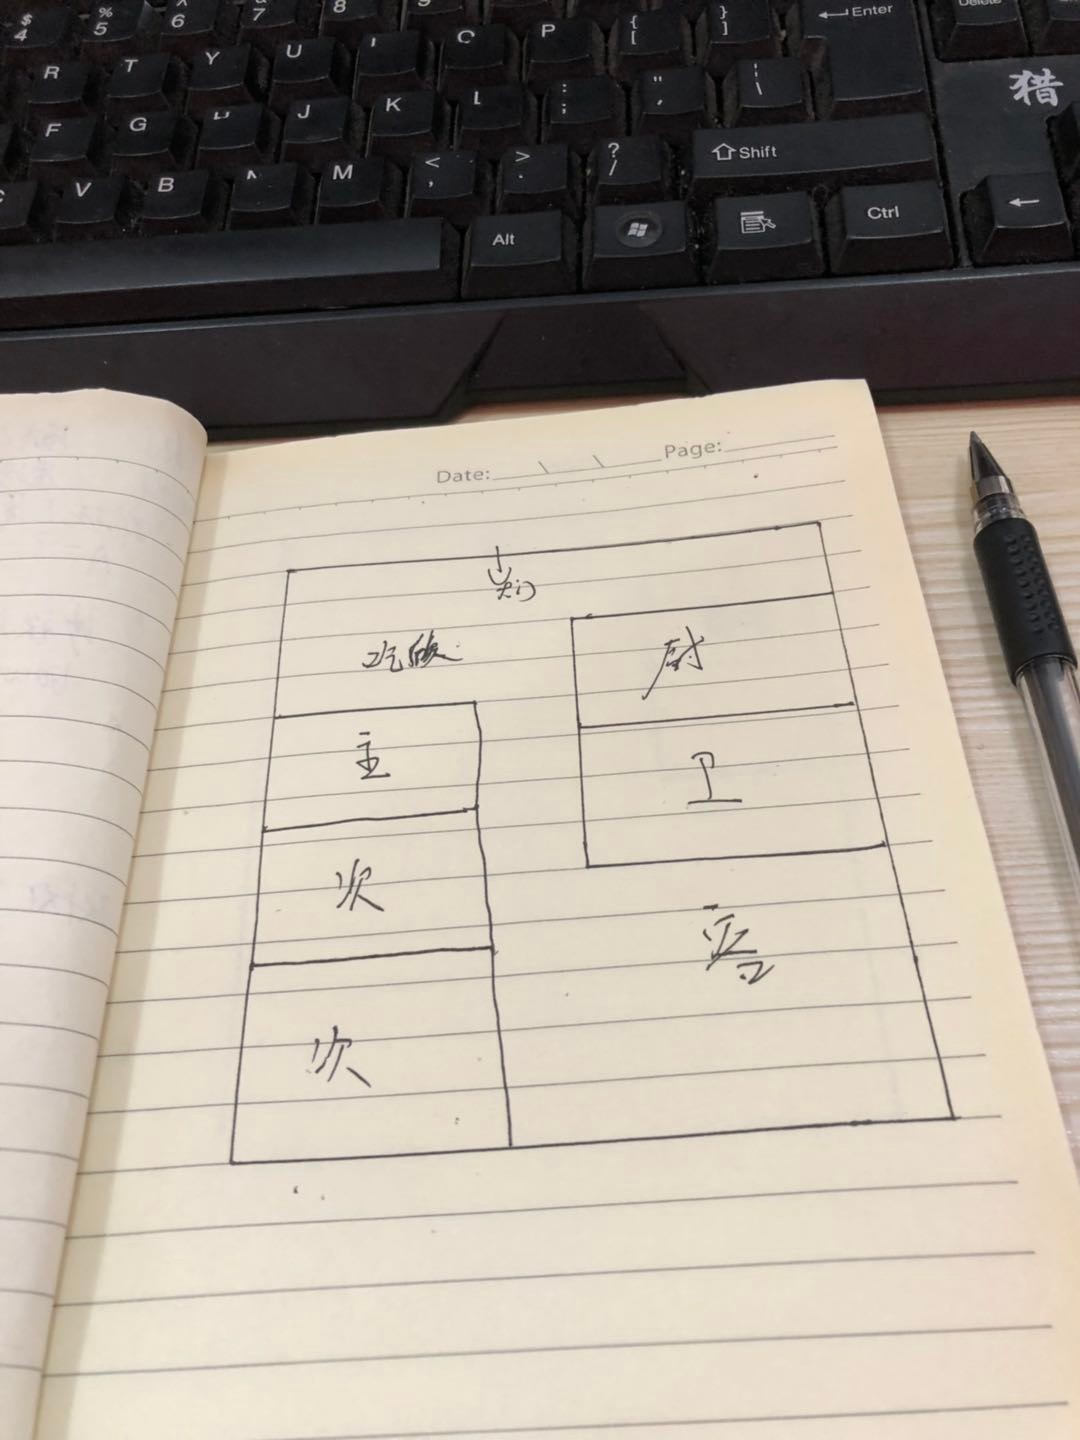 $ 4
% 5
^ 6
& 7
8
9
R T Y U I O P { [ } ] Enter Delete
F G H J K L : ; " ' | \ 猎
C V B N M < , > . ? / Shift
Alt Ctrl ←
Date: \ \ Page:
大门
吃饭
厨
主
卫
次
次